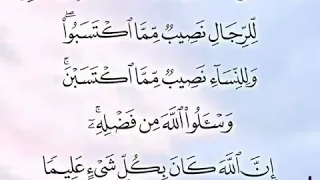 لِّلرِّجَالِ نَصِيبٌ مِّمَّا ٱكْتَسَبُوا۟ۖ
وَلِلنِّسَآءِ نَصِيبٌ مِّمَّا ٱكْتَسَبْنَۚ
وَسْـَٔلُوا۟ ٱللَّهَ مِن فَضْلِهِۦٓۚ
إِنَّ ٱللَّهَ كَانَ بِكُلِّ شَىْءٍ عَلِيمًا